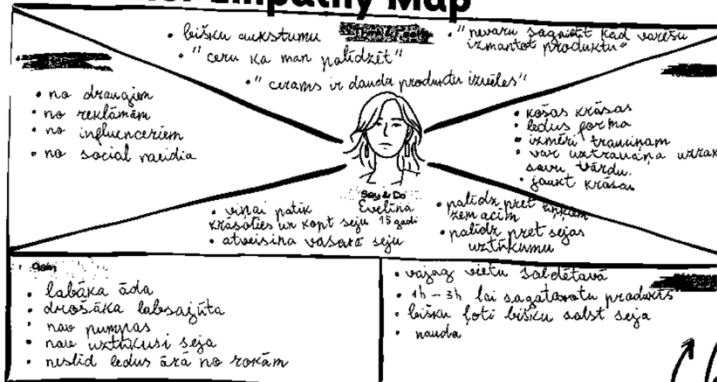 Empathy Map
• bišķu aukstumu
• "nevaru sagaidīt kad varēšu
izmantot produktu"
• "ceru ka man palīdzēt"
• "cerams ir daudz produktu izvēles"
• no draugiem
• no reklāmām
• no influenceriem
• no social media
• košas krāsas
• ledus forma
• izmēri trauciņam
• var uz trauciņa uzrak
savu vārdu.
• jaukt krāsas
Say & Do
Evelīna
15 gadi
• viņai patīk
krāsoties un kopt seju
• atvēsina vasarā seju
• palīdz pret
zem acīm
• palīdz pret sejas
uztūkumu
Gain
• labāka āda
• drošāka labsajūta
• nav pumpas
• nav uztūkusi seja
• neslīd ledus ārā no rokām
• vajag vietu saldētavā
• 1h - 3h lai sagatavotu produkts
• bišķu ļoti bišķu salst seja
• nauda